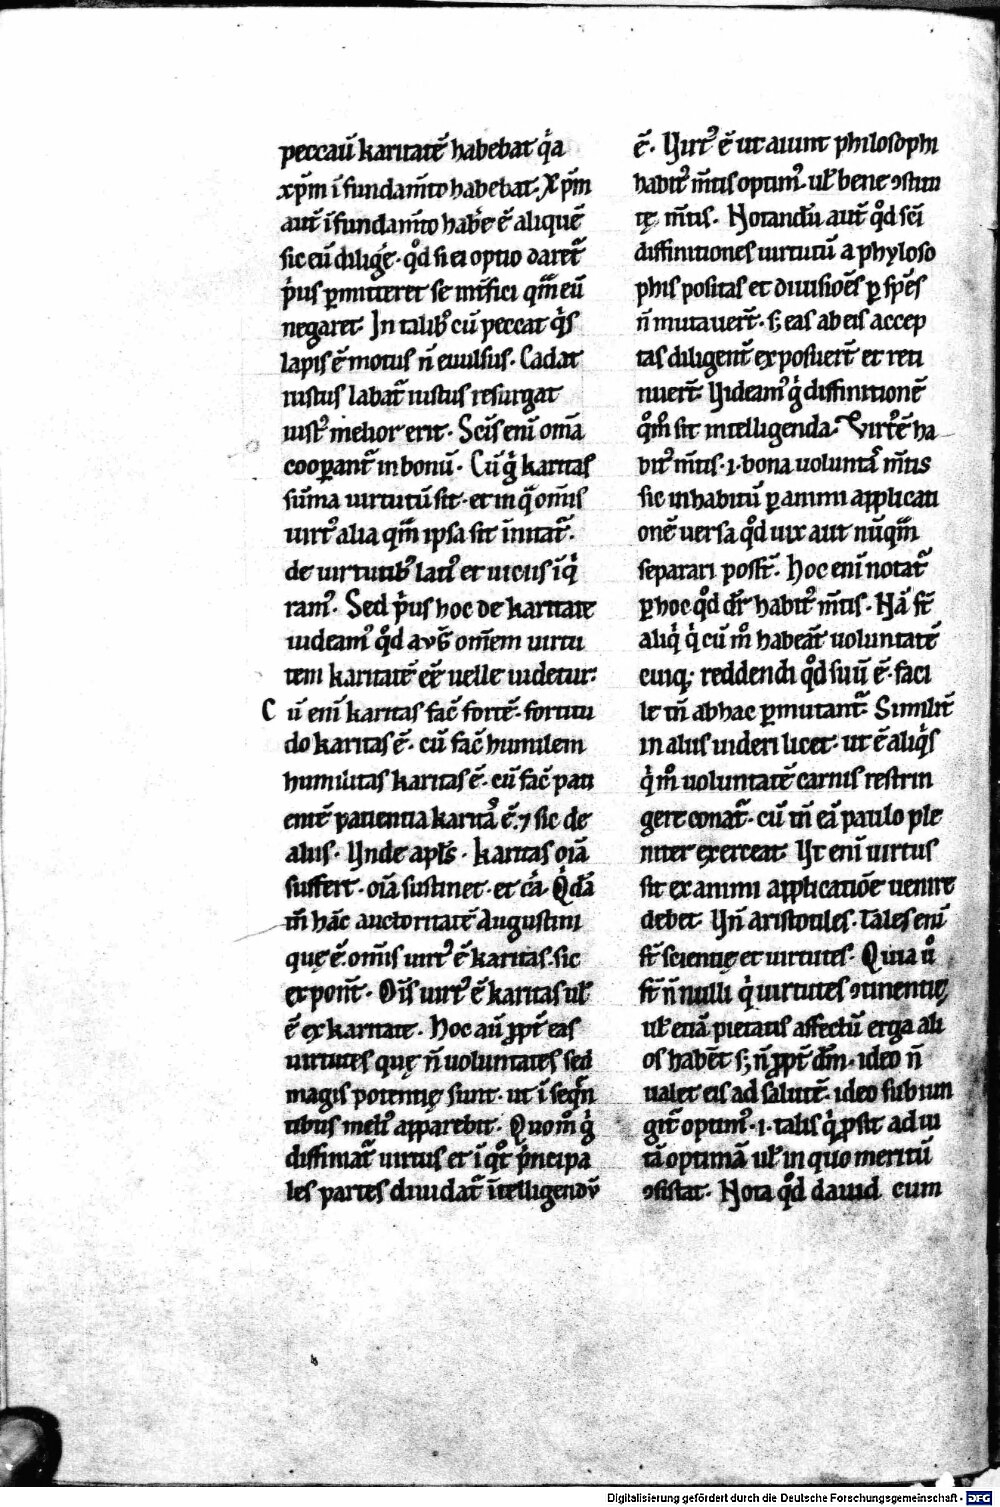 peccaũ karitatẽ habebat q̇a
xp̃m ĩ fundam̃to habebat. Xp̃m
aut̃ ĩ fundam̃to hab̓e ẽ aliquẽ
sic eũ dilig̓e. qͦd si ei optio daret᷑
p̓us p̱mitteret se int̓fici qm̃ eũ
negaret. In talib; cũ peccat q̓s
lapis ẽ motus ñ euulsus. Cadat
iustus labat᷑ iustus resurgat
iust᷒ melior erit. Scĩs enĩ om̃a
coop̱ant᷑ in bonũ. Cũ g̓ karitas
sũma uirtutũ sit. et in q̃ om̃is
uirt᷒ alia qm̃ ipsa sit ĩnitat᷑.
de uirtutib; lati᷒ et uicĩis ĩq̓
ram᷒. Sed p̓us hoc de karitate
uideam᷒ qͦd aug̃ om̃em uirtu
tem karitatẽ eẽ uelle uidetur.
Cũ enĩ karitas fac̃ fortẽ. fortitu
do karitas ẽ. cũ fac̃ humilem
humilitas karitas ẽ. cũ fac̃ pati
entẽ patientia karitã ẽ. ⁊ sic de
aliis. Vnde apl̃s. karitas oĩa
suffert. oĩa sustinet. et c̃a. Q̓dã
tm̃ hãc auctoritatẽ Augustini
quę ẽ. om̃is uirt᷒ ẽ karitas. sic
expont̃. Oĩs uirt᷒ ẽ karitas ul̃
ẽ ex karitate. Hoc aũ ꝓpt̃ eas
uirtutes quę ñ uoluntates sed
magis potentię sunt. ut ĩ seq̃n
tibus meli᷒ apparebit. Quom̊ g̓
diffiniat᷑ uirtus et ĩ qͦt p̓ncipa
les partes diuidat᷑ ĩtelligendũ
ẽ. Virt᷒ ẽ ut aiunt philosophi
habit᷒ m̃tis optim᷒. ul̃ bene ꝯstitu
tę m̃tis. Notandũ aut̃ qͦd scĩ
diffinitiones uirtutũ a phyloso
phis positas et diuisiões p̱ spẽs
ñ mutauert̃. s; eas ab eis accep
tas diligent̃ exposuert̃ et reti
nuert̃. Videam᷒ g̓ diffinitionẽ
qͦm̊ sit intelligenda. Virt᷒ ẽ ha
bit᷒ m̃tis .i. bona uoluntã m̃tis
sic in habitũ p̱ animi applicati
onẽ uersa qͦd uix aut nũqm̃
separari possit̃. Hoc enĩ notat᷑
p̱ hoc qͦd dr̃ habit᷒ m̃tis. Nã st̃
aliq̓ q̓ cũ m̊ habeãt uoluntatẽ
cuiq; reddendi qͦd suũ ẽ. faci
le tñ ab hac p̱mutant᷑. Similit̃
in aliis uideri licet. ut ẽ aliq̓s
q̓ m̊ uoluntatẽ carnis restrin
gere conat᷑. cũ tñ eã paulo ple
niter exerceat. Vt enĩ uirtus
sit ex animi applicatiõe uenire
debet. Vñ aristotiles. tales enĩ
st̃ scientię et uirtutes. Quia ů
st̃ ñnulli q̓ uirtutes ꝯtinentię
ul̃ etiã pietatis affectũ erga ali
os habẽt s; ñ ꝓpt̃ dm̃. ideo ñ
ualet eis ad salutẽ. ideo subiun
git᷑ optim᷒ .i. talis q̓ ꝓsit ad ui
tã optimã ul̃ in quo meritũ
ꝯsistat. Nota qͦd dauid cum
Digitalisierung gefördert durch die Deutsche Forschungsgemeinschaft - DFG